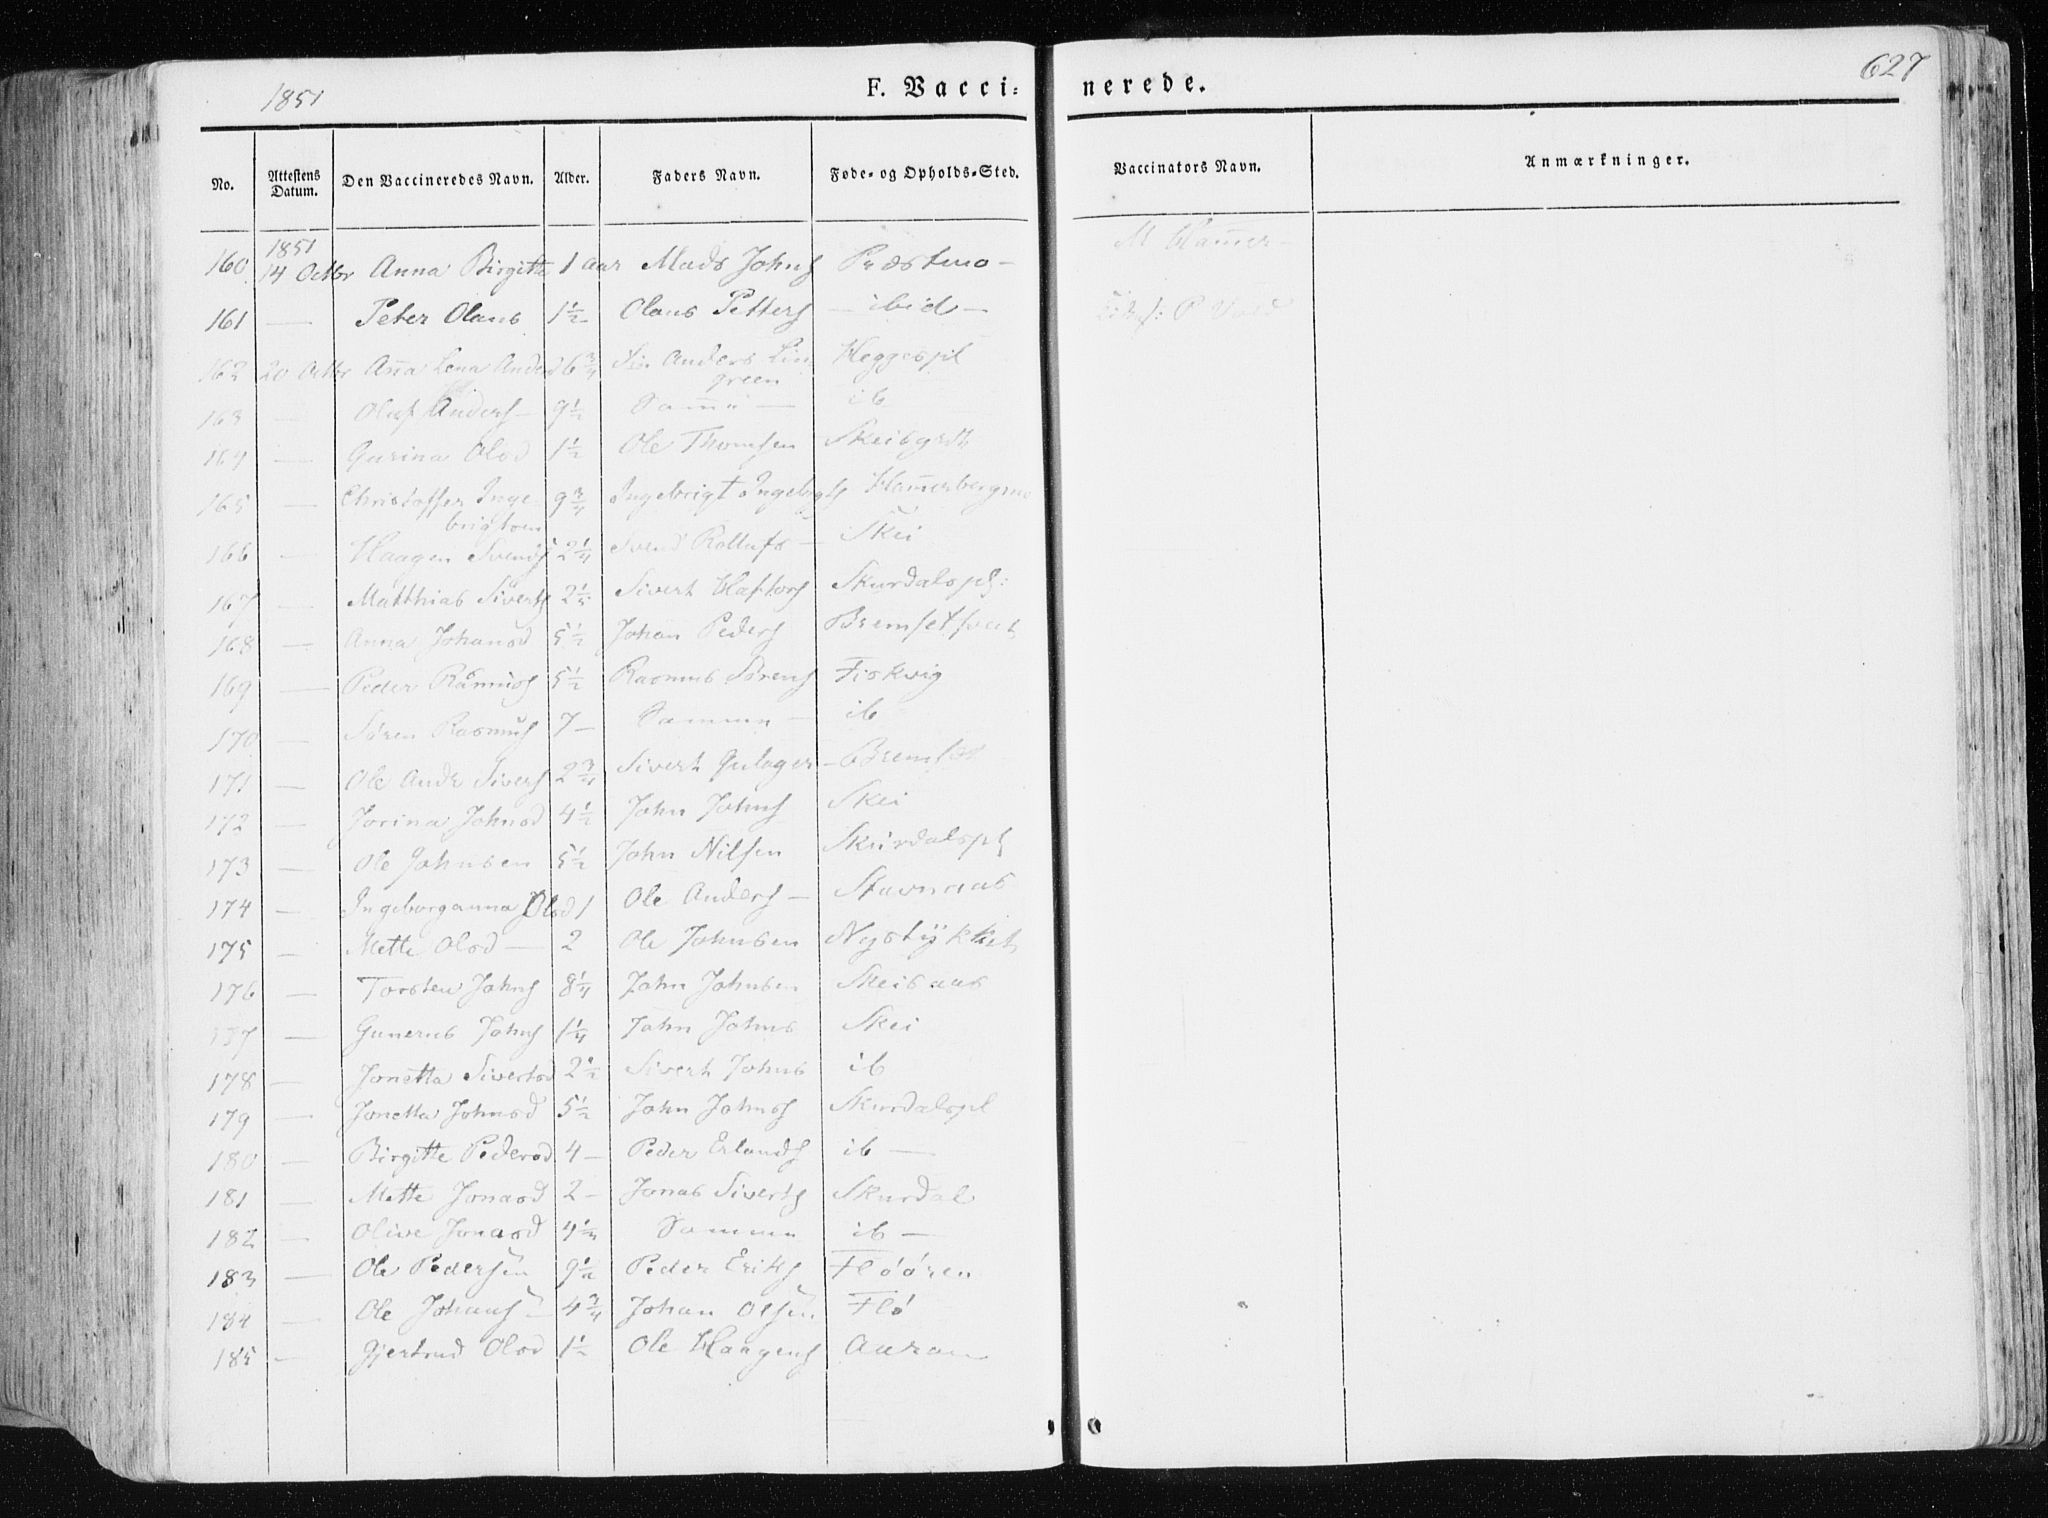 1851
F. Vacci= nerede.
627
No. Attestens Datum. Den Vaccineredes Navn. Alder. Faders Navn. Føde- og Opholds-Sted. Vaccinators Navn. Anmærkninger.
1851
160 14 Octbr Anna Birgitte 1 aar Mads Johns Præstmo - M Ham̄er -
161 — Peter Olaus 1½ Olaus Petters - ibid -
162 20 Octbr An̄a Lena Andersd 6¾ Anders Lin= Heggespl
green
163 — Oluf Anders - 9½ Sam̄e — ib
164 — Gurina Olsd 1½ Ole Thomsen Skeisgrd
165 — Christoffer Inge= 9¾ Ingebrigt Ingebrigts Ham̄erbergmo
brigtsen
166 — Haagen Svends 2¼ Svend Rollufs - Skei
167 — Matthias Siverts 2⅕ Sivert Haftors Skurdalspl:
168 — Anna Johansd 5½ Johan Peders Bremset
169 — Peder Rasmuss 5½ Rasmus Sørens Fiskvig
170 — Søren Rasmuss 7 - Samme - ib
171 — Ole Andr Sivers 2¾ Sivert Gulager - Bremset
172 — Jorina Johnsd 4½ John Johns Skei
173 — Ole Johnsen 5½ John Nilsen Skurdalspl
174 — Ingeborganna Olsd 1 Ole Anders - Stavnaas
175 — Mette Olsd — 2 Ole Johnsen Nystykket
176 — Torsten Johns 8¼ John Johnsen Skeisaas
177 — Gunerus Johns 1¼ John Johns Skei
178 — Jonetta Sivertsd 2½ Sivert Johns ib
179 — Jonetta Johnsd 5½ John Johns Skurdalspl
180 — Birgitte Pedersd 4 - Peder Erlands ib —
181 — Mette Jonasd 2 - Jonas Siverts Skurdal
182 — Olive Jonasd 4¼ Samme ib —
183 — Ole Pedersen 9½ Peder Eriks Flöören
184 — Ole Johans - 4¾ Johan Olsen Flö
185 - Gjertrud Olsd 1½ Ole Haagens Aaram